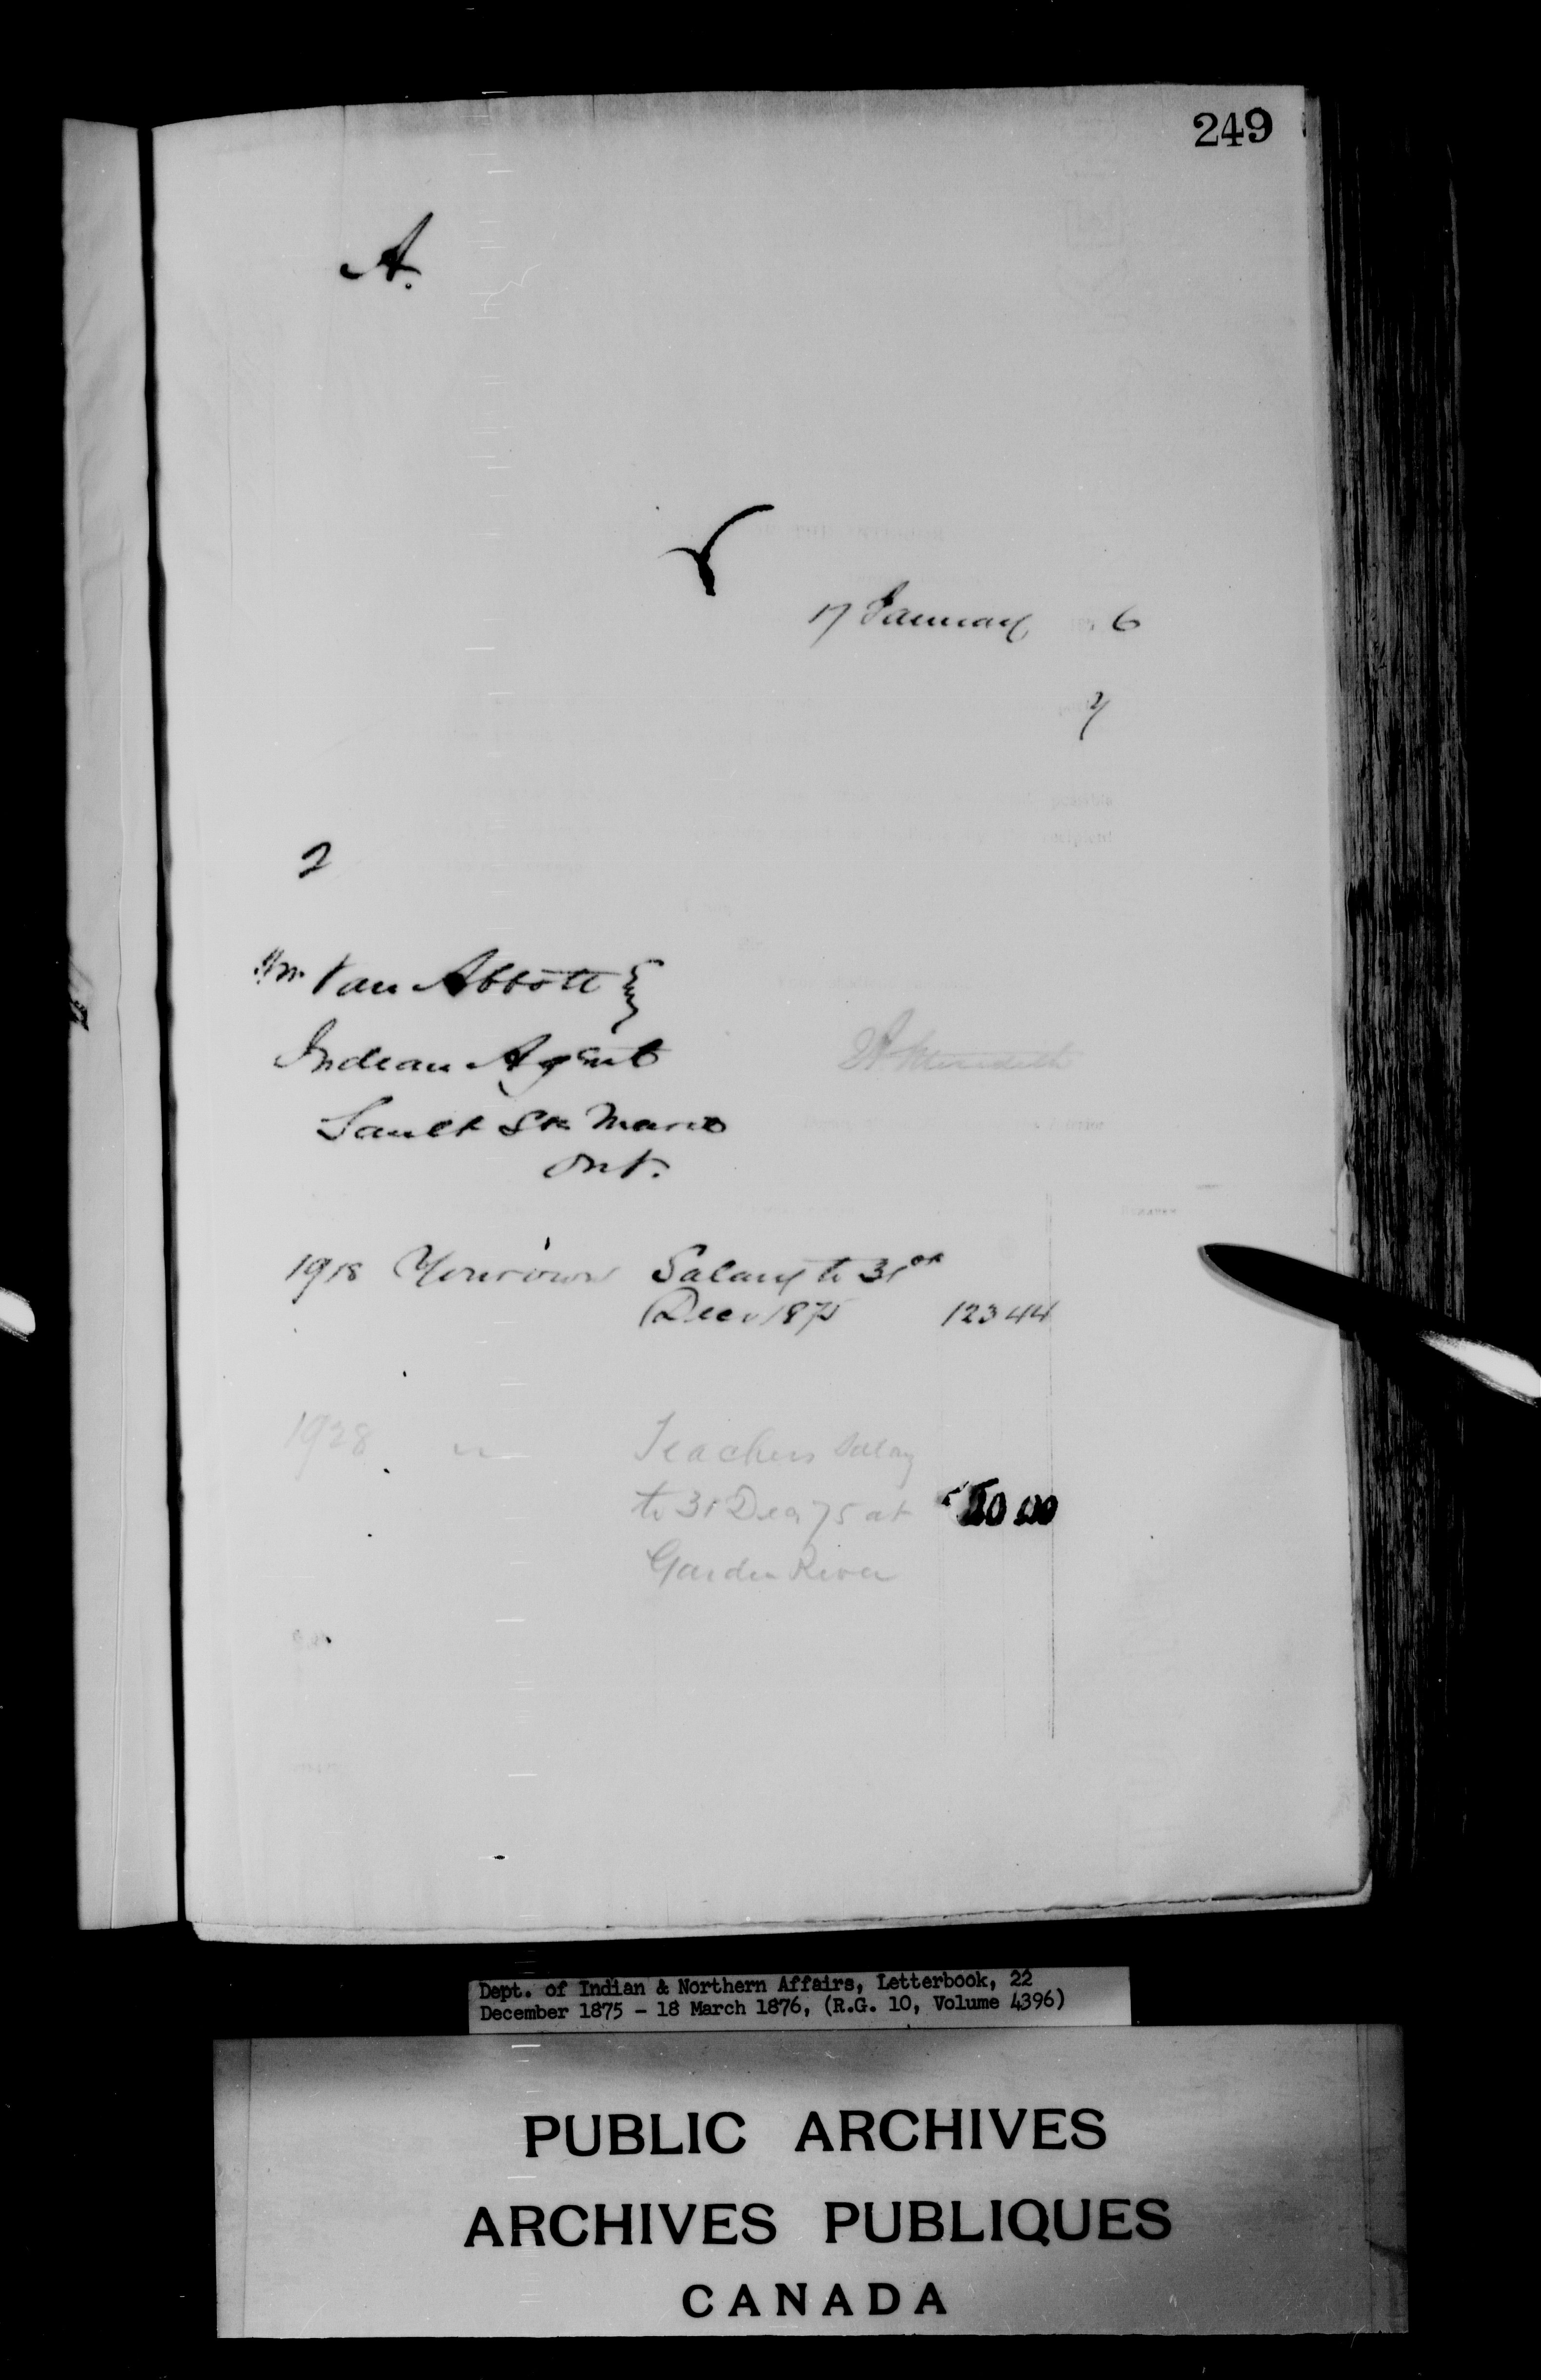 249
A.
17 January 6
2
Wm Van Abbott Esq
Indian Agent
Sault Ste Marie
Ont.
1918 Your own Salary to 31st
Dec 1875 123 44
1928 " Teachers Salary
to 31 Dec 75 at 50 00
Garden River
Dept. of Indian & Northern Affairs, Letterbook, 22
December 1875 - 18 March 1876, (R.G. 10, Volume 4396)
PUBLIC ARCHIVES
ARCHIVES PUBLIQUES
CANADA